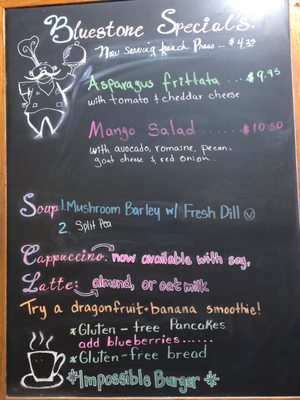 Bluestone Specials:
Now Serving french Press ... $4.35
Asparagus frittata .... $9.95
with tomato & cheddar cheese
Mango Salad ...... $10.50
with avocado, romaine, pecan,
goat cheese & red onion.
Soup 1. Mushroom Barley w/ Fresh Dill Ⓥ
2. Split Pea
Cappuccino: now available with soy,
Latte: almond, or oat milk
Try a dragonfruit-banana smoothie!
*Gluten-free Pancakes
add blueberries......
*Gluten-free bread
*Impossible Burger *